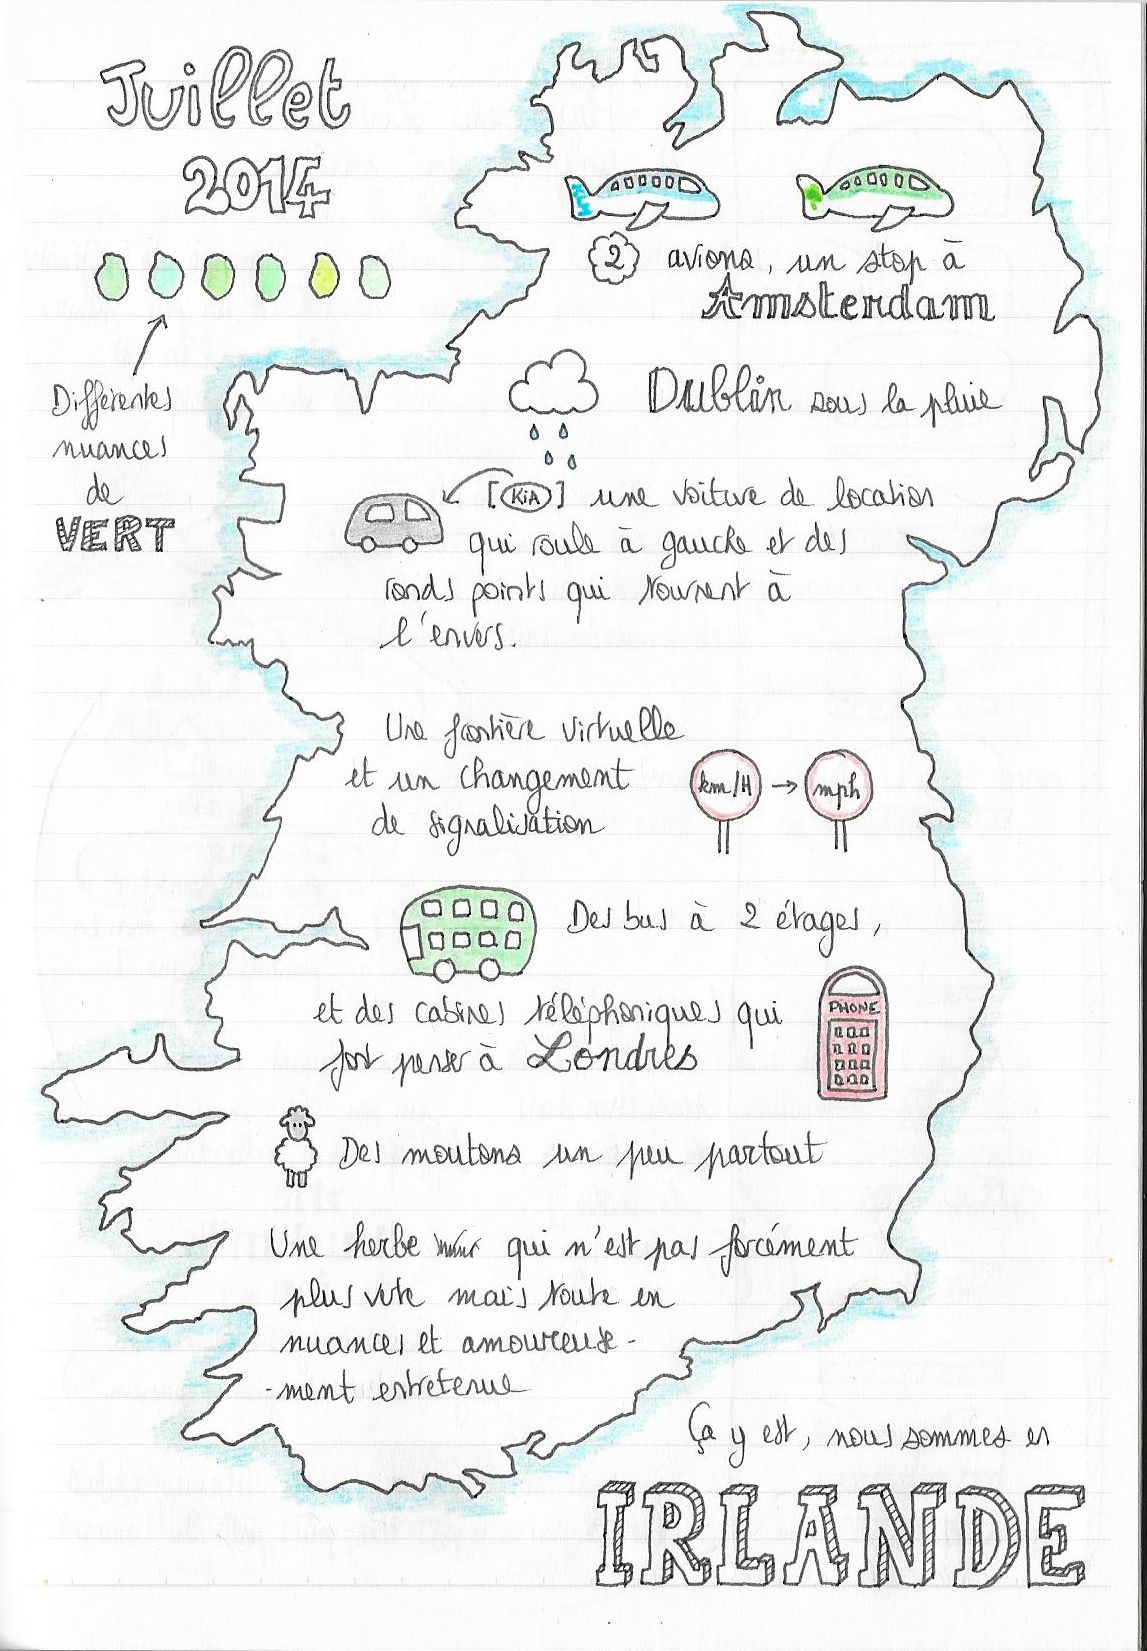 Juillet
2014
Différentes
nuances
de
VERT
KLM
2 avions, un stop à
Amsterdam
Dublin sous la pluie
[KiA] une voiture de location
qui roule à gauche et des
ronds points qui tournent à
l'envers.
Une frontière virtuelle
et un changement
de signalisation
km/H → mph
Des bus à 2 étages,
et des cabines téléphoniques qui
PHONE
font penser à Londres
Des moutons un peu partout
Une herbe qui n'est pas forcément
plus verte mais toute en
nuances et amoureuse-
-ment entretenue
Ça y est, nous sommes en
IRLANDE